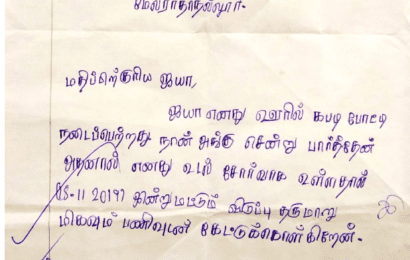 மேலராதாநல்லூர்.
மதிப்பிற்குரிய ஐயா,
ஐயா எனது ஊரில் கபடி போட்டி
நடைபெற்றது நான் அங்கு சென்று பார்த்தேன்
அதனால் எனது உடல் சோர்வாக உள்ளதால்
(15-11 2019) இன்று மட்டும் விடுப்பு தருமாறு
மிகவும் பணிவுடன் கேட்டுக்கொள்கிறேன்.